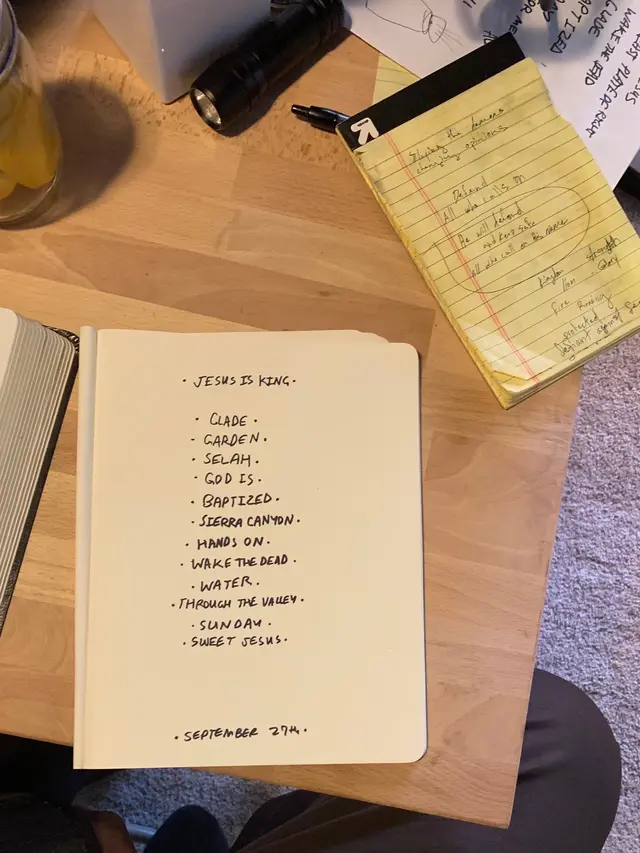 · JESUS IS KING.
· CLADE ·
· GARDEN.
· SELAH.
· GOD IS.
· BAPTIZED.
· SIERRA CANYON.
· HANDS ON.
· WAKE THE DEAD.
· WATER.
· THROUGH THE VALLEY.
· SUNDAY.
· SWEET JESUS.
· SEPTEMBER 27th.
Slaying the demons
changing opinions
Defend
All who calls on
He will defend
and keep safe
all who call on his name
Kingdom
Glory
Fire Running
protected
Defiant against
WAKE THE DEAD
CLADE